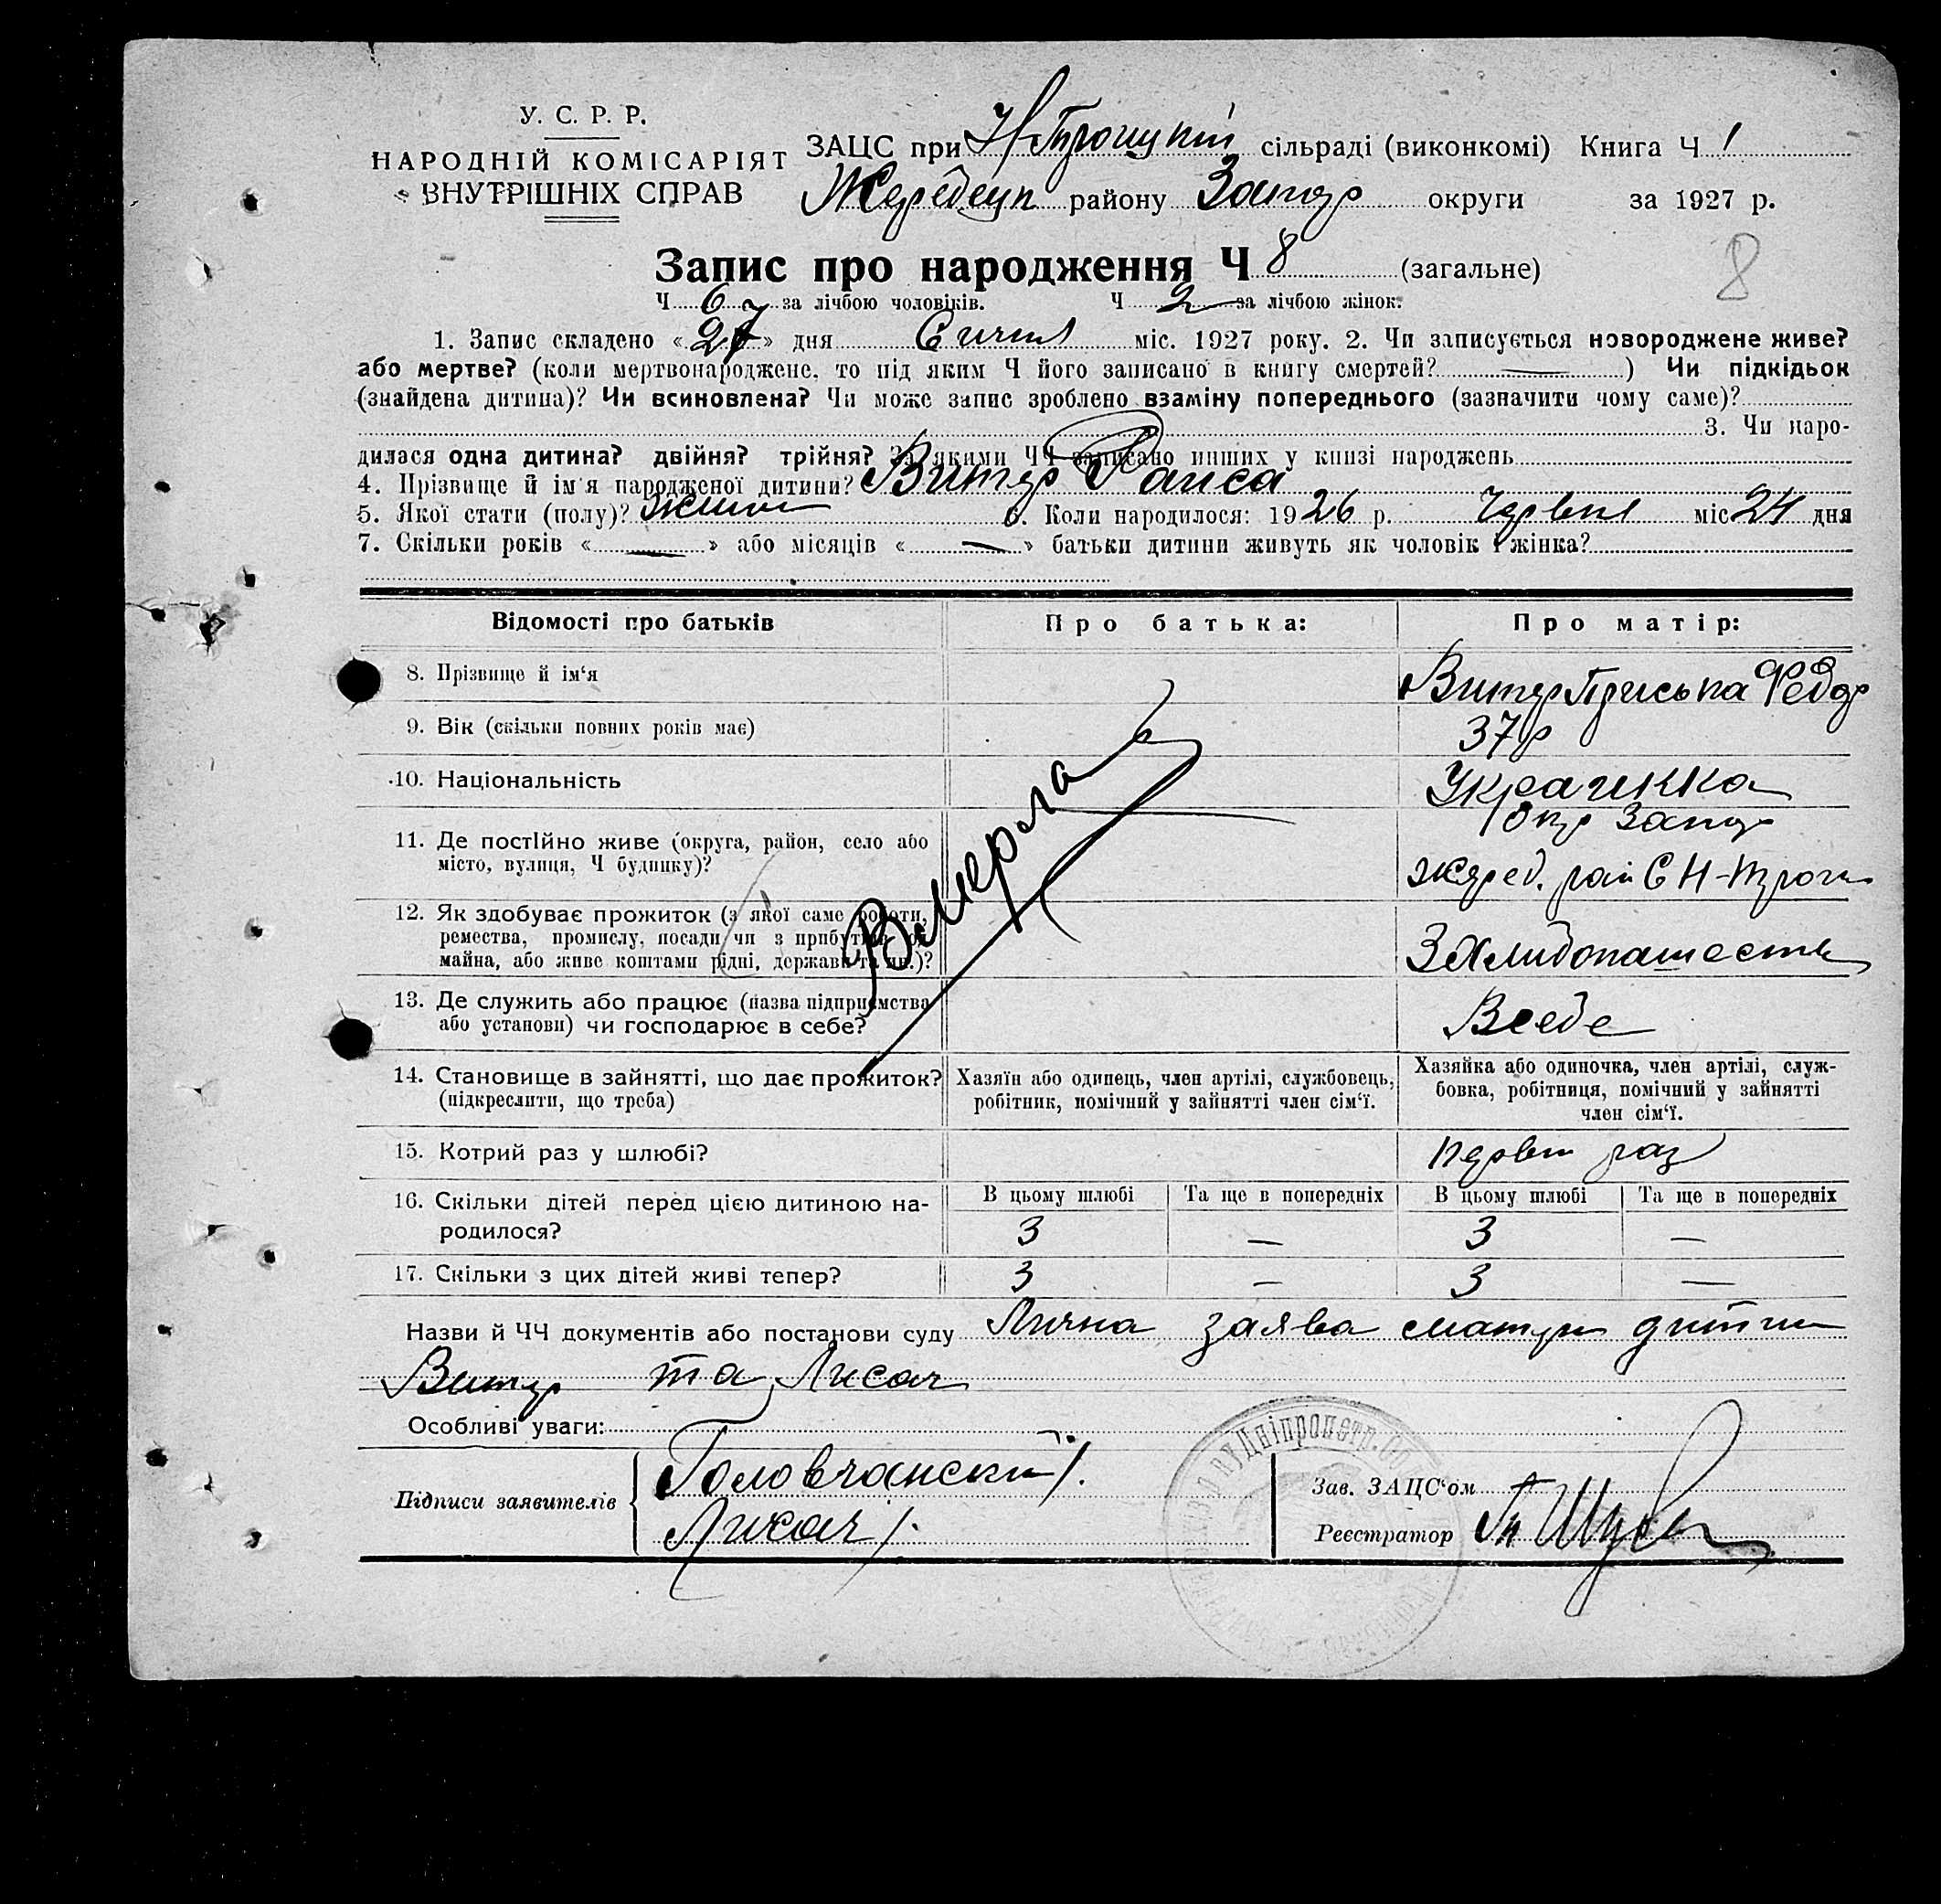 У. С. Р. Р.
НАРОДНІЙ КОМІСАРІЯТ
ВНУТРІШНІХ СПРАВ
ЗАЦС при Н-Троицкій сільраді (виконкомі) Книга Ч 1
Жеребецк району Запор округи за 1927 р.
Запис про народження Ч 8 (загальне)
8
Ч 6 за лічбою чоловіків. Ч 2 за лічбою жінок.
1. Запис складено « 27 » дня Січня міс. 1927 року. 2. Чи записується новороджене живе?
або мертве? (коли мертвонароджене, то під яким Ч його записано в книгу смертей? — ) Чи підкідьок
(знайдена дитина)? Чи всиновлена? Чи може запис зроблено взаміну попереднього (зазначити чому саме)?
3. Чи наро-
дилася одна дитина? двійня? трійня? За якими ЧЧ записано инших у книзі народжень
4. Прізвище й ім'я народженої дитини? Витер Раиса
5. Якої стати (полу)? жіноч 6. Коли народилося: 1926 р. Червня міс 24 дня
7. Скільки років « — » або місяців « — » батьки дитини живуть як чоловік і жінка?
Відомості про батьків Про батька: Про матір:
8. Прізвище й ім'я Витер Приська Федор
9. Вік (скільки повних років має) 37 р
10. Національність Украинка
11. Де постійно живе (округа, район, село або
місто, вулиця, Ч будинку)?
Окр Запор
жеред. рай С Н-Троги
Вмерла
12. Як здобуває прожиток (з якої саме роботи,
ремества, промислу, посади чи з прибутків од
майна, або живе коштами рідні, держави та ин.)?
З Хлибопашеств
13. Де служить або працює (назва підприємства
або установи) чи господарює в себе?
Всебе
14. Становище в зайнятті, що дає прожиток?
(підкреслити, що треба)
Хазяїн або одинець, член артілі, службовець,
робітник, помічний у зайнятті член сім'ї.
Хазяйка або одиночка, член артілі, служ-
бовка, робітниця, помічний у зайнятті
член сім'ї.
15. Котрий раз у шлюбі? первий раз
16. Скільки дітей перед цією дитиною на-
родилося?
В цьому шлюбі Та ще в попередніх В цьому шлюбі Та ще в попередніх
3 — 3 —
17. Скільки з цих дітей живі тепер? 3 — 3 —
Назви й ЧЧ документів або постанови суду Лична заява матери дитини
Витер та Лисач
Особливі уваги:
Підписи заявителів
Головчанский
Лисач
Зав. ЗАЦС'ом
Реєстратор
Дніпропетр. Об